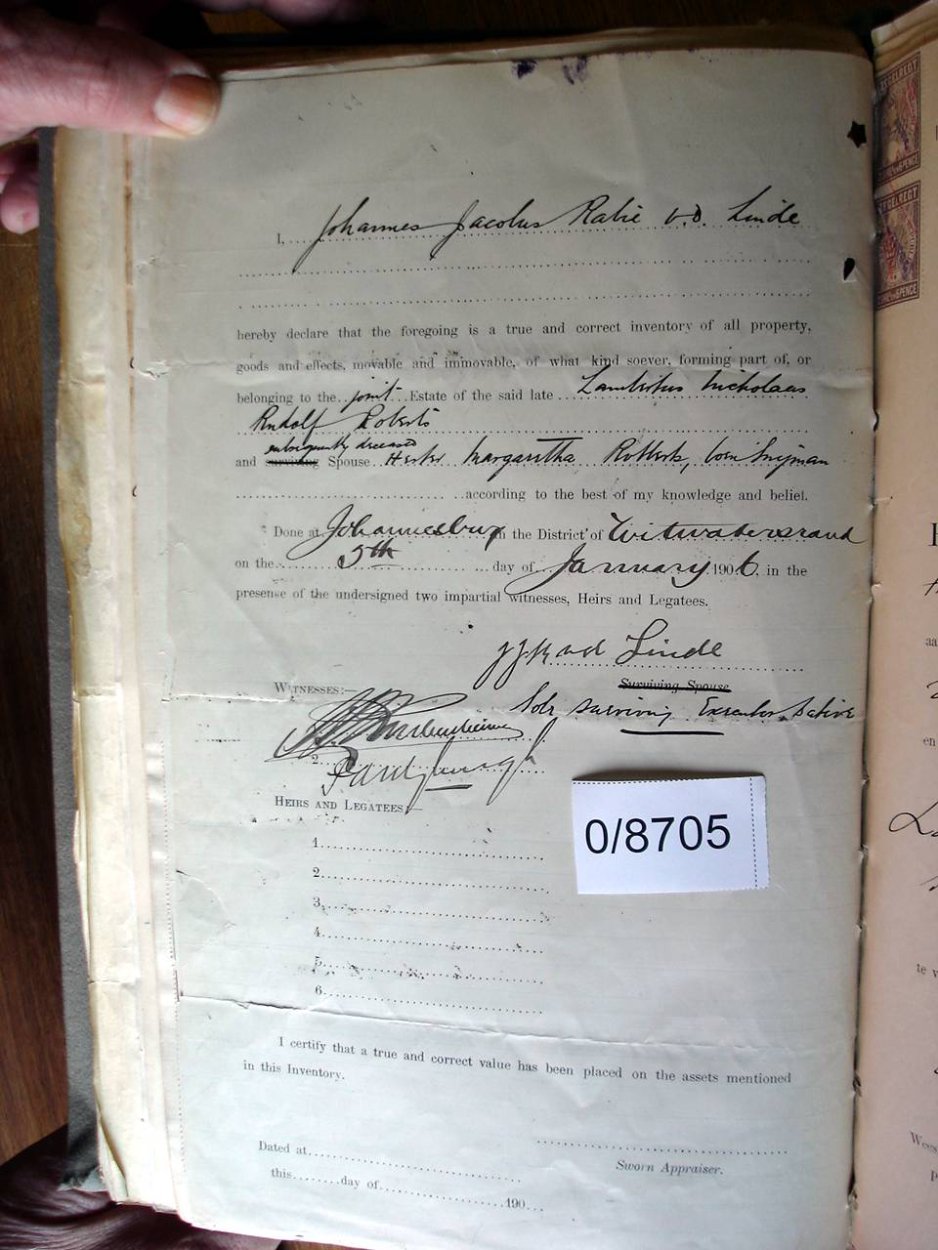 I, Johannes Jacobus Rabie v. d. Linde
hereby declare that the foregoing is a true and correct inventory of all property,
goods and effects, movable and immovable, of what kind soever, forming part of, or
belonging to the joint Estate of the said late Lambertus Nicholaas
Rudolf Roberts
subsequently deceased
and surviving Spouse Hester Margaretha Roberts, born Snyman
according to the best of my knowledge and belief.
Done at Johannesburg in the District of Witwatersrand
on the 5th day of January 1906, in the
presence of the undersigned two impartial witnesses, Heirs and Legatees.
JJR vd Linde
Surviving Spouse
WITNESSES:—
Sole surviving Executor Dative
2.
HEIRS AND LEGATEES:—
1.
2.
3.
4.
5.
6.
0/8705
I certify that a true and correct value has been placed on the assets mentioned
in this Inventory.
Dated at
Sworn Appraiser.
this day of 190